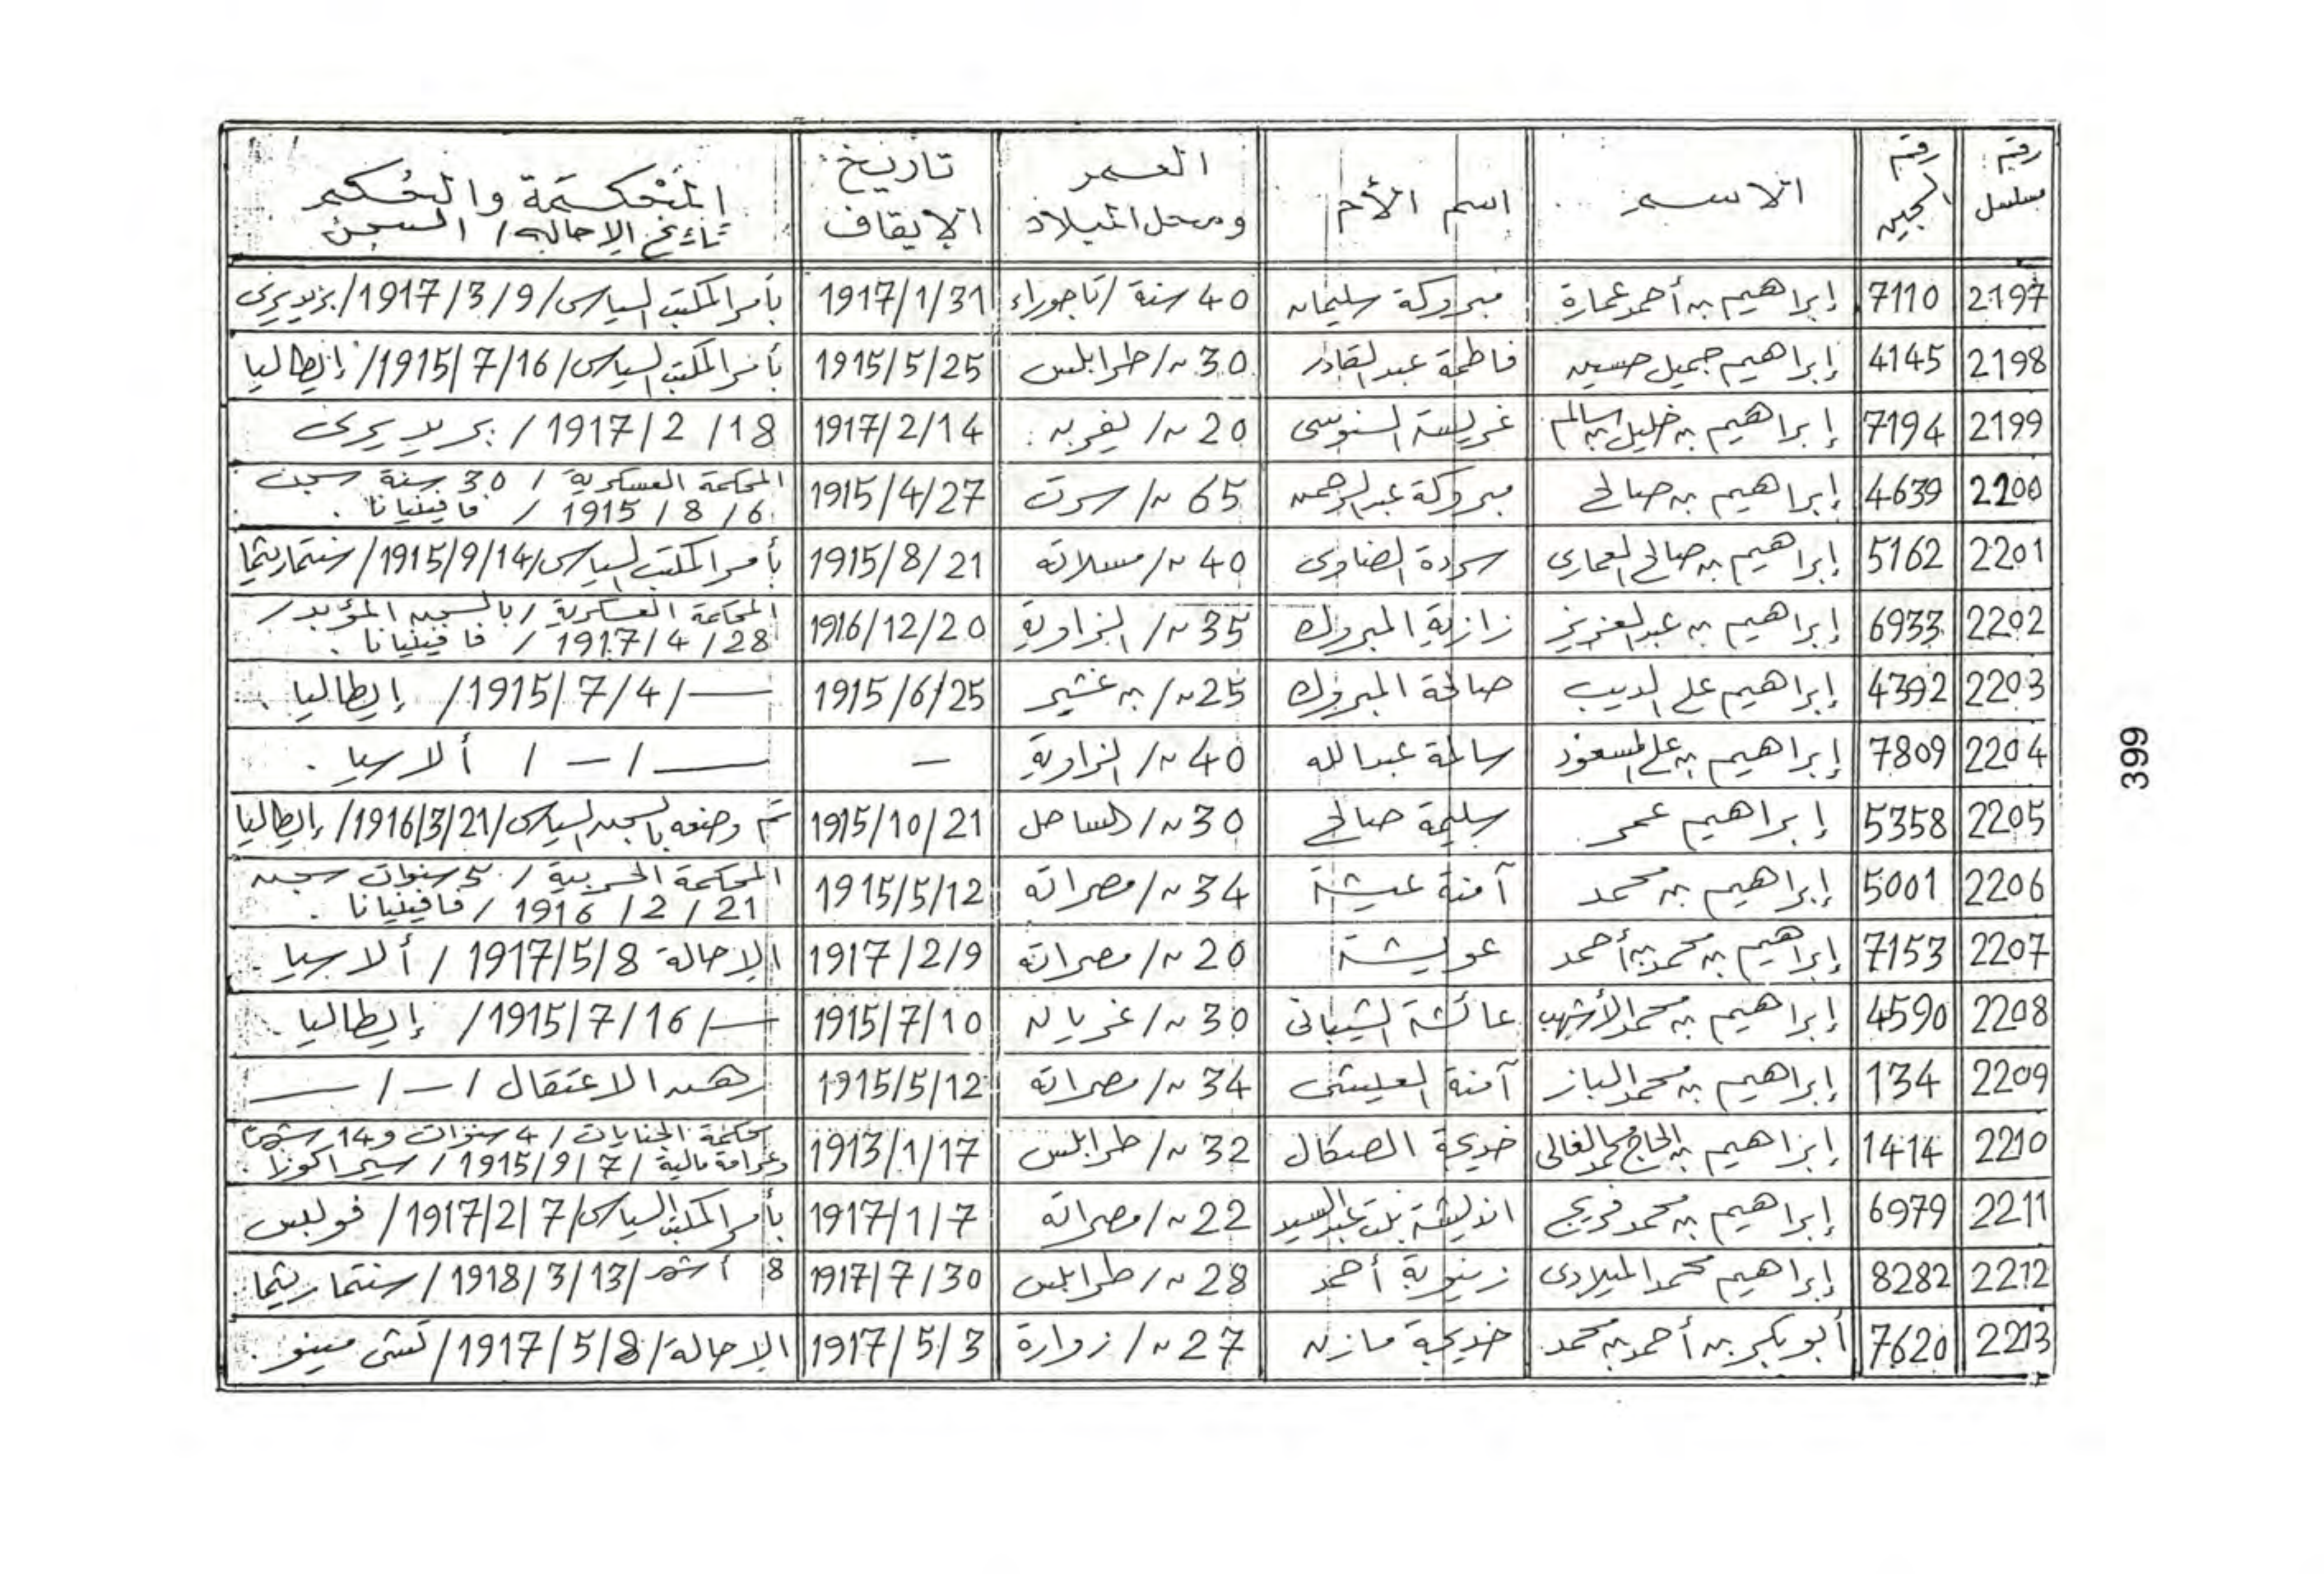 رقم مسلسل | رقم السجين | الاسم | اسم الأم | العمر ومحل الميلاد | تاريخ الإيقاف | المحكمة والحكم تاريخ الإحالة / السجن
2197 | 7110 | إبراهيم بن أحمد عمارة | مبروكة سليمان | 40 سنة / تاجوراء | 1917/1/31 | بأمر المكتب السياسي / 1917/3/9 /
2198 | 4145 | إبراهيم جميل حسين | فاطمة عبد القادر | 30 س / طرابلس | 1915/5/25 | بأمر المكتب السياسي / 1915/7/16 / إيطاليا
2199 | 7194 | إبراهيم بن خليل بن سالم | السنوسي | 20 س / | 1917/2/14 | 1917/2/18 /
2200 | 4639 | إبراهيم بن صالح | مبروكة عبد الرحمن | 65 س / سرت | 1915/4/27 | المحكمة العسكرية / 30 سنة سجن
1915/8/6 / فافينيانا .
2201 | 5162 | إبراهيم بن صالح العماري | | 40 س / مسلاته | 1915/8/21 | بأمر المكتب السياسي / 1915/9/14 /
2202 | 6933 | إبراهيم بن عبد العزيز | زازية المبروك | 35 س / الزاوية | 1916/12/20 | المحكمة العسكرية / بالسجن المؤبد /
1917/4/28 / فافينيانا .
2203 | 4392 | إبراهيم علي الديب | صالحة المبروك | 25 س / بن غشير | 1915/6/25 | — / 1915/7/4 / إيطاليا .
2204 | 7809 | إبراهيم بن علي المسعود | سالمة عبد الله | 40 س / الزاوية | - | — / - / ألاسيا .
2205 | 5358 | إبراهيم عمر | سليمة صالح | 30 س / الساحل | 1915/10/21 | تم وضعه بالسجن السياسي / 1916/3/21 / إيطاليا
2206 | 5001 | إبراهيم بن محمد | آمنة عيشة | 34 س / مصراته | 1915/5/12 | المحكمة الحربية / 5 سنوات سجن
1916/2/21 / فافينيانا .
2207 | 7153 | إبراهيم بن محمد بن أحمد | عويشة | 20 س / مصراته | 1917/2/9 | الإحالة 1917/5/8 / ألاسيا .
2208 | 4590 | إبراهيم بن محمد الأشهب | عائشة الشيباني | 30 س / غريان | 1915/7/10 | — / 1915/7/16 / إيطاليا .
2209 | 134 | إبراهيم بن محمد الباز | آمنة | 34 س / مصراته | 1915/5/12 | رهن الاعتقال / - / —
2210 | 1414 | إبراهيم بن الحاج محمد الغالي | خديجة الصكال | 32 س / طرابلس | 1913/1/17 | محكمة الجنايات / 4 سنوات و14 شهرًا
وغرامة مالية / 1915/9/7 / سيراكوزا .
2211 | 6979 | إبراهيم بن محمد فريج | بنت عبد السيد | 22 س / مصراته | 1917/1/7 | بأمر المكتب السياسي / 1917/2/7 /
2212 | 8282 | إبراهيم محمد الميلادي | أحمد | 28 س / طرابلس | 1917/7/30 | 8 أشهر / 1918/3/13 /
2213 | 7620 | أبو بكر بن أحمد بن محمد | خديجة مازن | 27 س / زوارة | 1917/5/3 | الإحالة / 1917/5/8 /
399